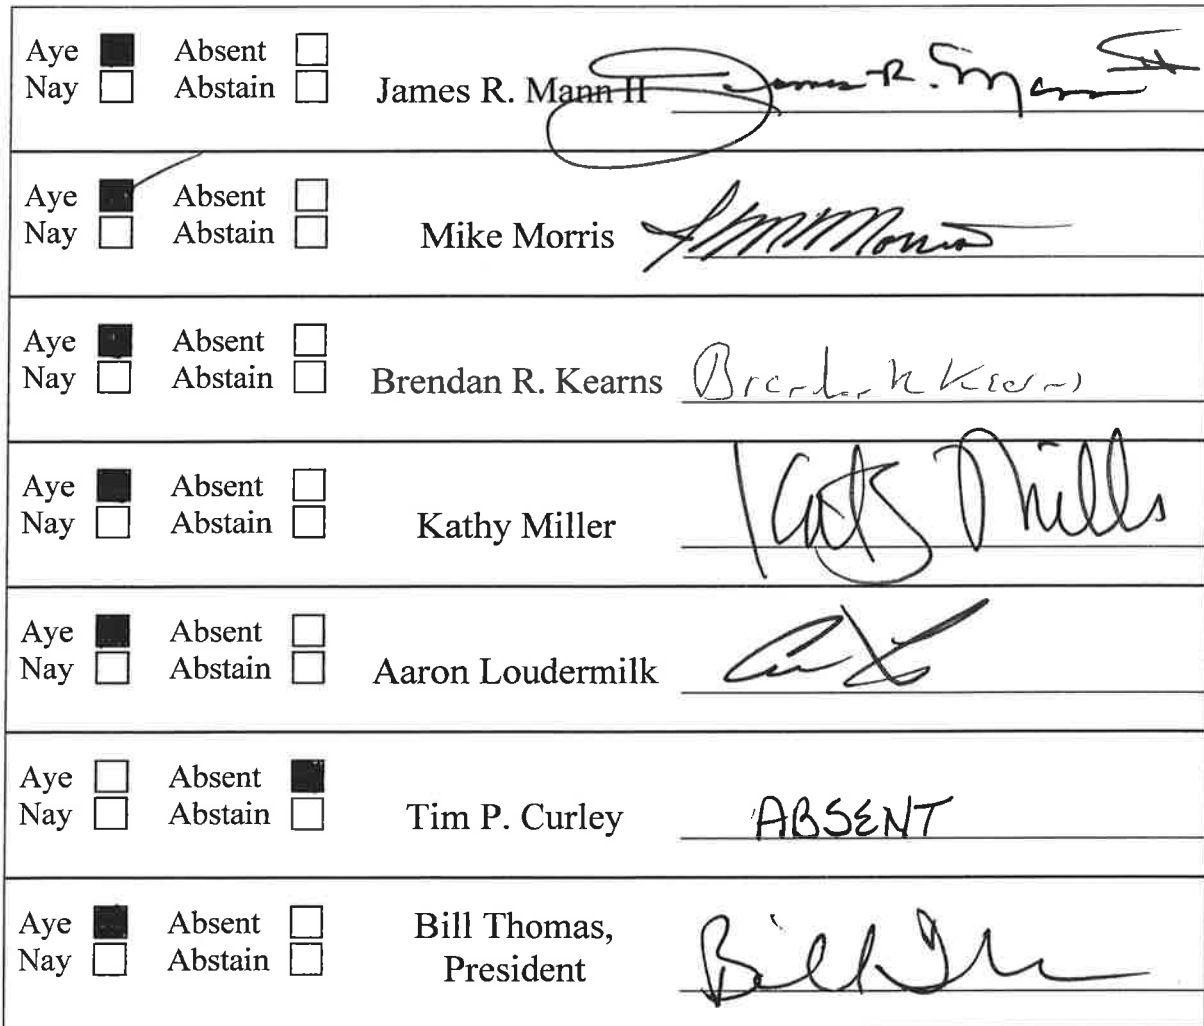 Aye ■ Absent □
Nay □ Abstain □
James R. Mann II James R. Mann II
Aye ■ Absent □
Nay □ Abstain □
Mike Morris
Aye ■ Absent □
Nay □ Abstain □
Brendan R. Kearns Brendan R Kearns
Aye ■ Absent □
Nay □ Abstain □
Kathy Miller
Aye ■ Absent □
Nay □ Abstain □
Aaron Loudermilk
Aye □ Absent ■
Nay □ Abstain □
Tim P. Curley ABSENT
Aye ■ Absent □
Nay □ Abstain □
Bill Thomas,
President